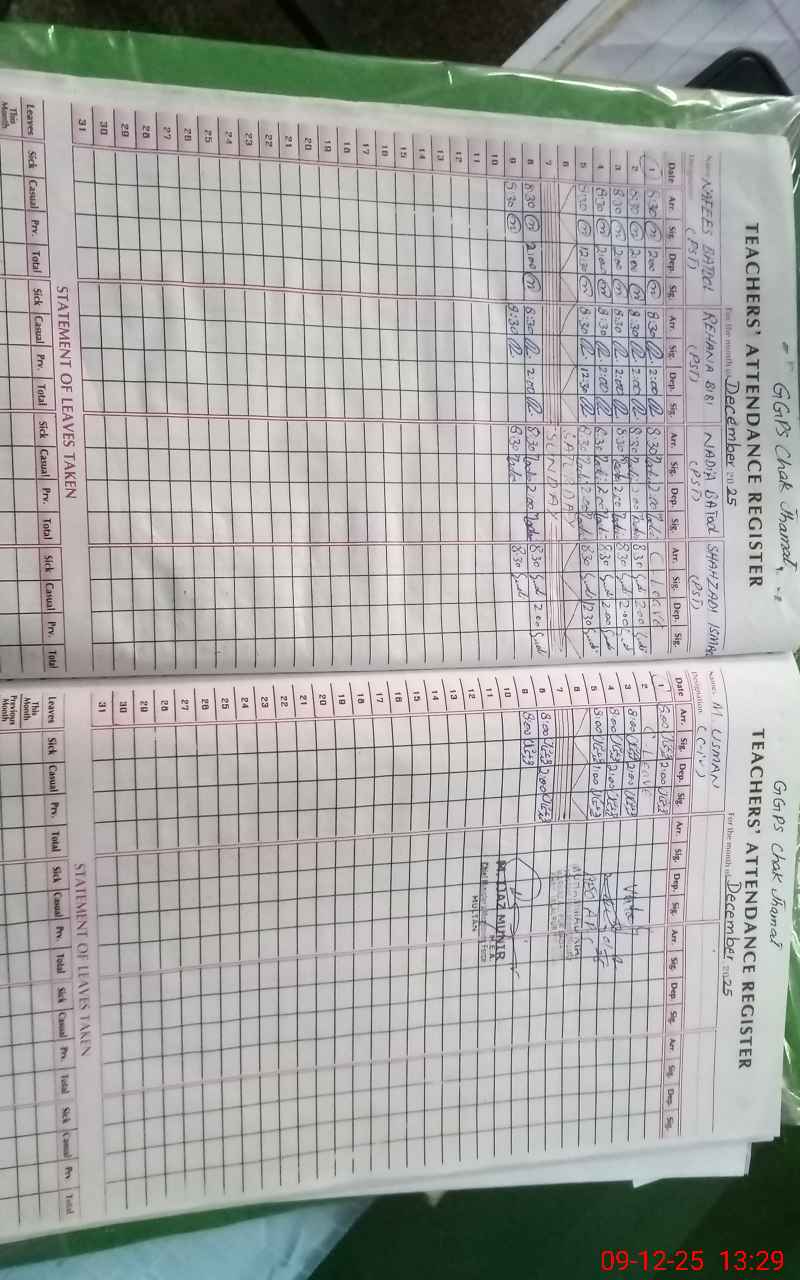 GGPS Chak Jhamat
TEACHERS' ATTENDANCE REGISTER
For the month of December 2025
Name NAFEES BATOOL REHANA BIBI NADIA BATOOL SHAHZADI ISMAT
Designation (PST) (PST) (PST) (PST)
Date Arr. Sig. Dep. Sig. Arr. Sig. Dep. Sig. Arr. Sig. Dep. Sig. Arr. Sig. Dep. Sig.
1 8:30 2:00 8:30 2:00 8:30 Nadia 2:00 Nadia C Leave
2 8:30 2:00 8:30 2:00 8:30 Nadia 2:00 Nadia 8:30 2:00
3 8:30 2:00 8:30 2:00 8:30 Nadia 2:00 Nadia 8:30 2:00
4 8:30 2:00 8:30 2:00 8:30 Nadia 2:00 Nadia 8:30 2:00
5 8:30 12:30 8:30 12:30 8:30 Nadia Nadia 8:30 12:30
6 SATURDAY
7 SUNDAY
8 8:30 2:00 8:30 2:00 8:30 Nadia 2:00 Nadia 8:30 2:00
9 8:30 8:30 8:30 Nadia 8:30
10
11
12
13
14
15
16
17
18
19
20
21
22
23
24
25
26
27
28
29
30
31
STATEMENT OF LEAVES TAKEN
Leaves Sick Casual Prv. Total Sick Casual Prv. Total Sick Casual Prv. Total Sick Casual Prv. Total
This Month
GGPS Chak Jhamat
TEACHERS' ATTENDANCE REGISTER
For the month of December 2025
Name M. USMAN
Designation (C-IV)
Date Arr. Sig. Dep. Sig. Arr. Sig. Dep. Sig. Arr. Sig. Dep. Sig. Arr. Sig. Dep. Sig.
1 8:00 2:00
2 C LEAVE
3 8:00 2:00
4 8:00 2:00
5 8:00 1:00
6
7
8 8:00 2:00
9 8:00
10
11
12
13
14
15
16
17
18
19
20
21
22
23
24
25
26
27
28
29
30
31
M. IJAZ MUNIR
M.E.A
MULTAN
STATEMENT OF LEAVES TAKEN
Leaves Sick Casual Prv. Total Sick Casual Prv. Total Sick Casual Prv. Total Sick Casual Prv. Total
This Month
Previous Month
09-12-25 13:29